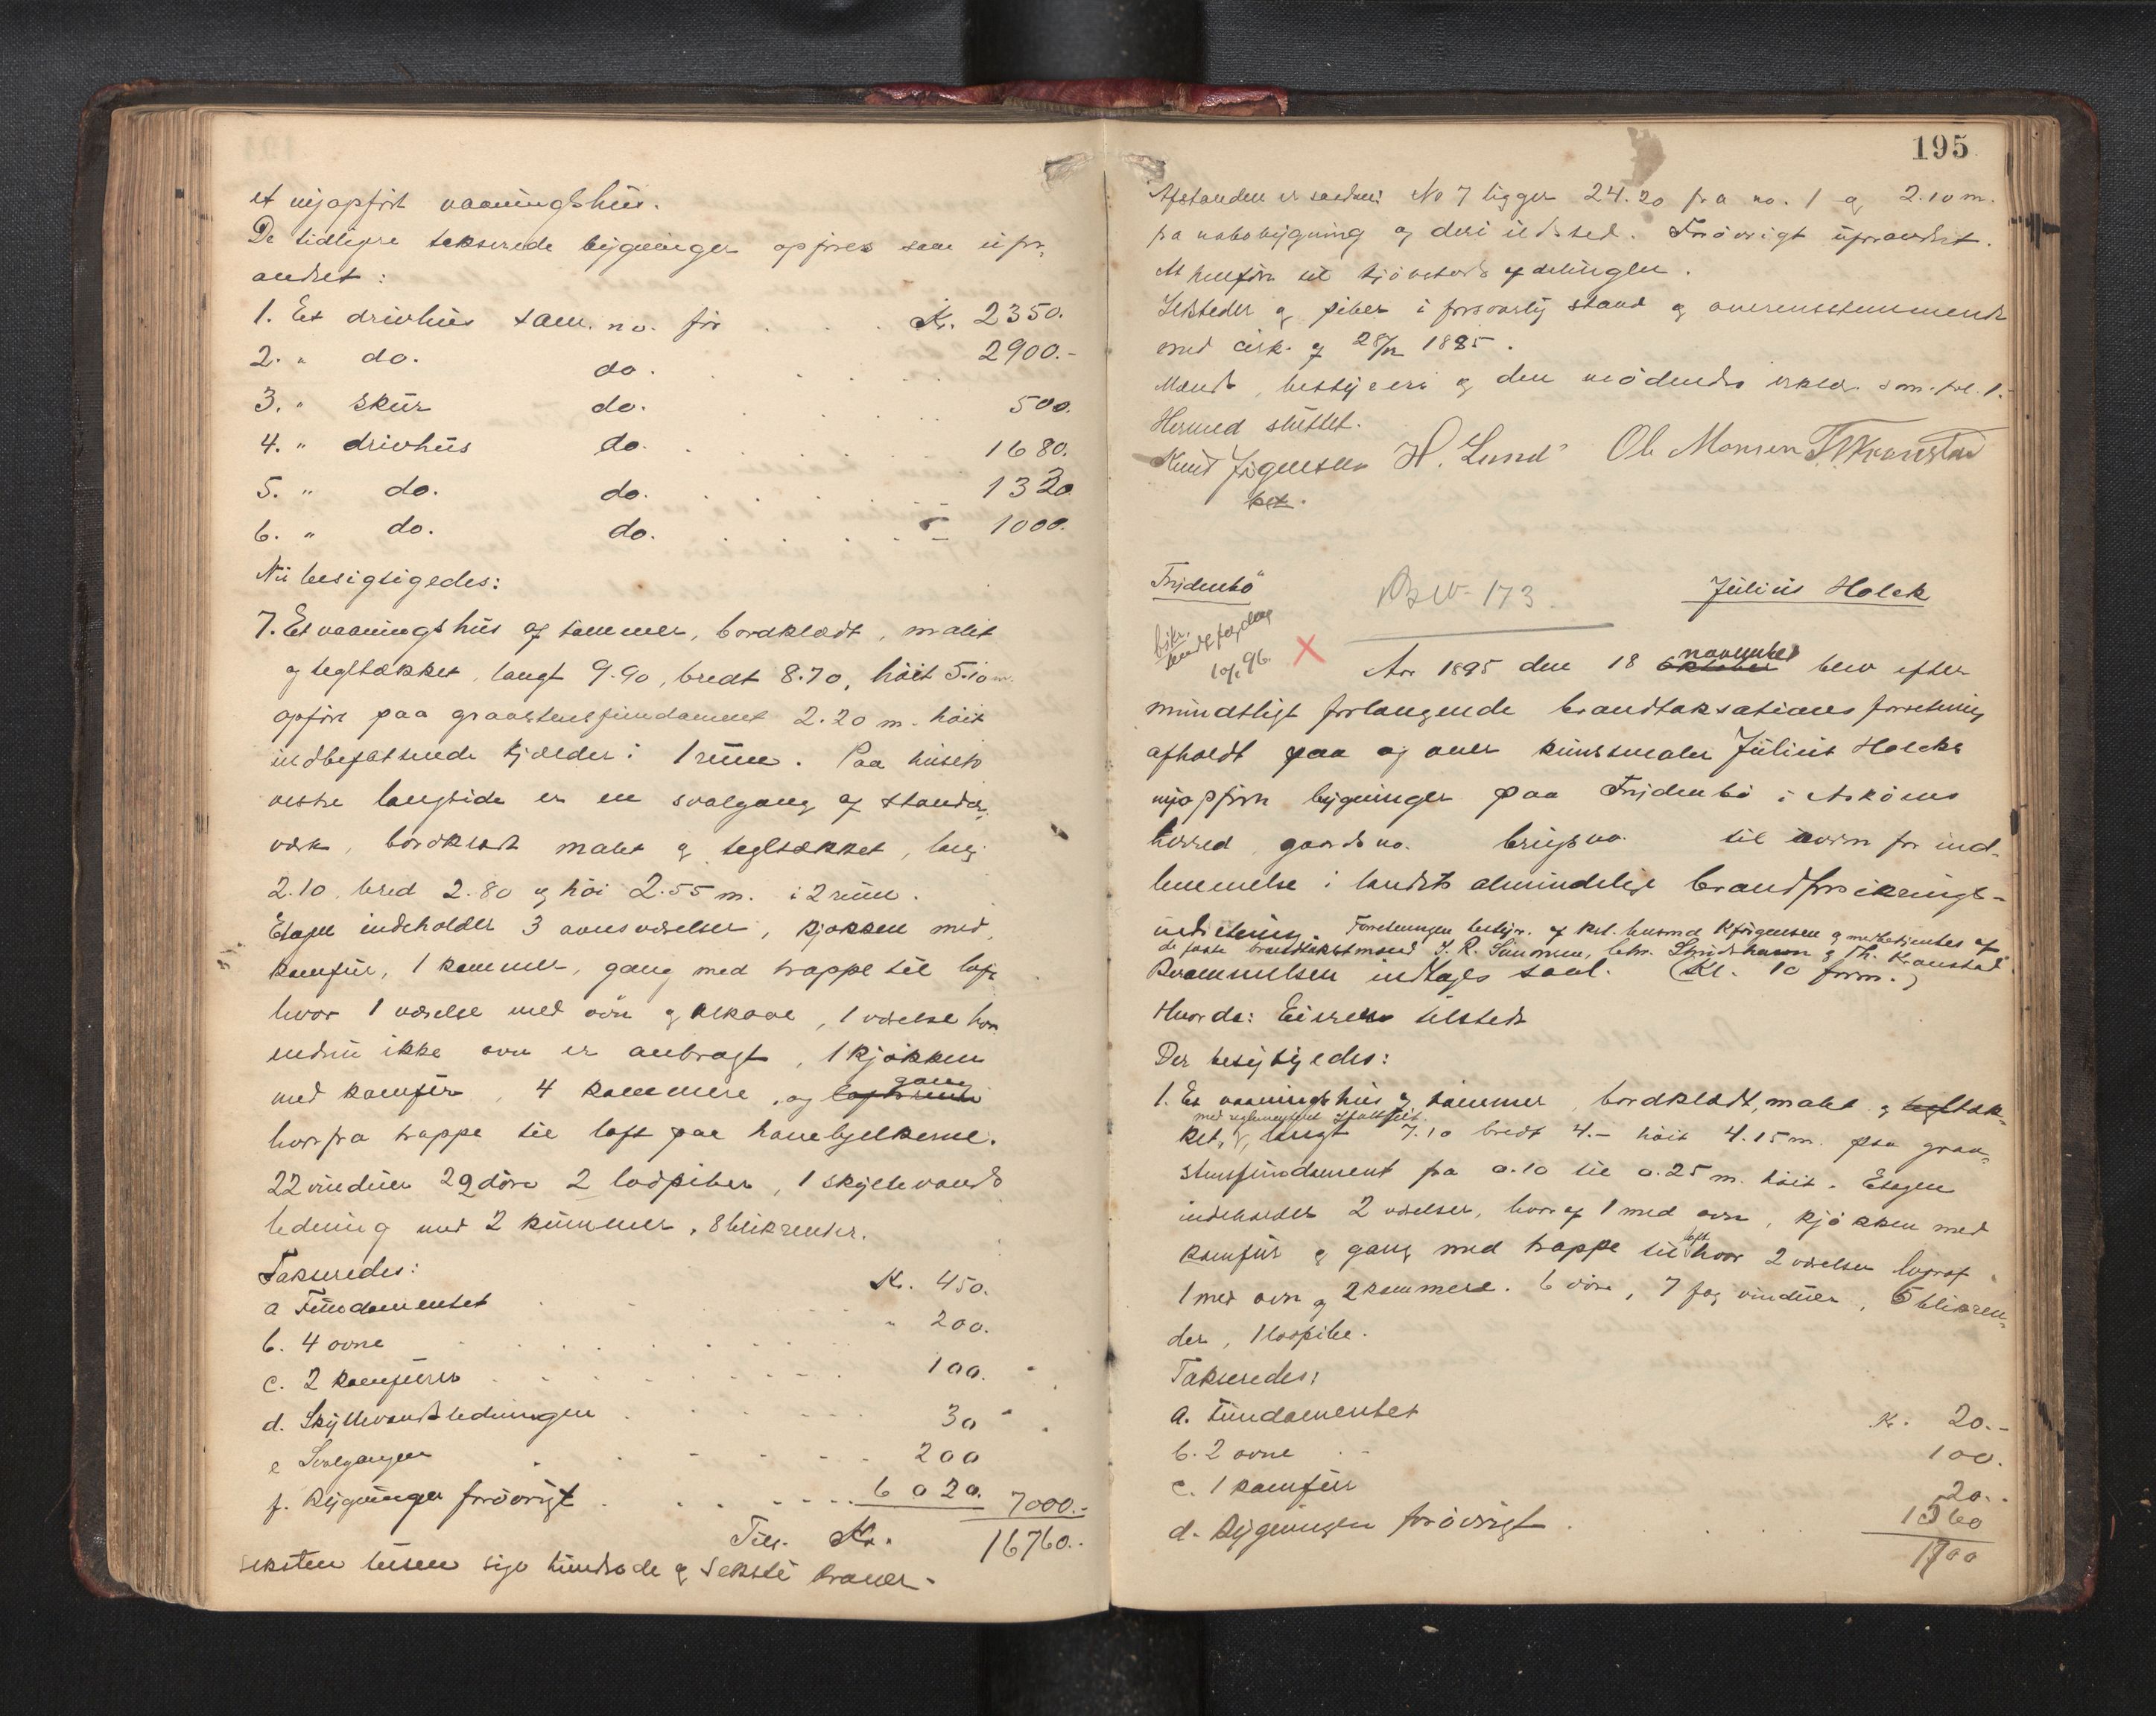 et nyopført vaaningshus.
De tidligere takserede bygninger opføres som ufor-
andret:
1. Et drivhus sam. no. før . . . Kr. 2350.
2. " do. do. . . . 2900.-
3. " skur do. . . . 500.
4. " drivhus do. . . . 1680.
5. " do. do. . . . 1320
6. " do. do. . . . 1000.
Nu besigtigedes:
7. Et vaaningshus af tømmer, bordklædt, malet
og tegltækket, langt 9.90, bredt 8.70, høit 5.10 m.
opført paa graastensfundament 2.20 m. høit
indbefattende kjælder i 1 rum. Paa husets
vestre langside er en svalgang af stender-
værk, bordklædt malet og tegltækket, lang
2.10, bred 2.80 og høi 2.55 m. i 2 rum.
Etagen indeholder 3 ovnsværelser, kjøkken med
komfur, 1 kammer, gang med trappe til loft
hvor 1 værelse med ovn og alkove, 1 værelse hvor
endnu ikke ovn er anbragt, 1 kjøkken
med komfur, 4 kammere, og gang
hvorfra trappe til loft paa hanebjelkerne.
22 vinduer 22 døre 2 lodpiber, 1 skyllevands
ledning med 2 kummer, 8 blikrender.
Takseredes:
a Fundamentet . . . Kr. 450.
b. 4 ovne . . . " 200.
c. 2 komfurer . . . 100.
d. Skyllevandsledningen . . . 30
e Svalgangen . . . 200
f. Bygningen forøvrigt . . . 6020. 7000.-
Tils. Kr. 16760.-
seksten tusen syv hundrede og seksti kroner.-
195
Afstanden er saadan: No 7 ligger 24.20 fra no. 1 og 2.10 m.
fra nabobygning og deri ildsted. Forøvrigt uforandret.
At henføre til afdelingen.
Ildsteder og piber i forsvarlig stand og overensstemmende
med cirk. af 28/12 1885.
Mænd, bestyrere og den mødende erklær. som fol. 1.
Hermed sluttet.
Knut Jørgensen H. Lund Ole Monsen T. Kronstad
bst.
"Frydenbø" Br W- 173. Julius Holck
10/1 96. X
Aar 1895 den 18 oktober november blev efter
mundtligt forlangende brandtaksationsforretning
afholdt paa og over kunstmaler Julius Holcks
nyopførte bygninger paa Frydenbø i Askøens
herred, gaards no. brugs no. til for ind-
lemmelse i landets almindelige brandforsikrings-
indretning. Forretningen bestyr. af kst. lensmd KJørgensen og medbetjentes af
de faste brandtakstmænd J. R. Simonsen, og Th. Kronstad
Bramnelsen indtages saal. (Kl. 10 form.)
Hvorda: Eieren tilstede
Der besigtigedes:
1. Et vaaningshus af tømmer, bordklædt, malet og tegltæk-
ket, langt 7.10 bredt 4.- høit 4.15 m. paa graa-
stensfundament fra 0.10 til 0.25 m. høit. Etagen
indeholder 2 værelser, hvoraf 1 med ovn, kjøkken med
komfur og gang med trappe til loft hvor 2 værelser hvoraf
1 med ovn og 2 kammere. 6 døre, 7 fag vinduer, 5 blikren-
der, 1 lodpibe.
Takseredes:
a. Fundamentet Kr. 20.-
b. 2 ovne . . 100.
c. 1 komfur 20.-
d. Bygningen forøvrigt . . . 1560
1700